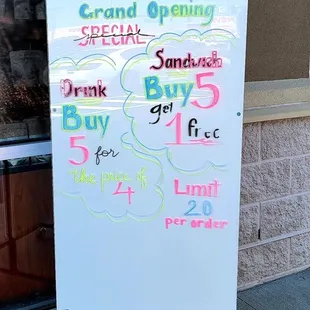 Grand Opening
SPECIAL
Drink
Buy
5 for
The price of
4
Sandwich
Buy 5
get
1 free
Limit
20
per order